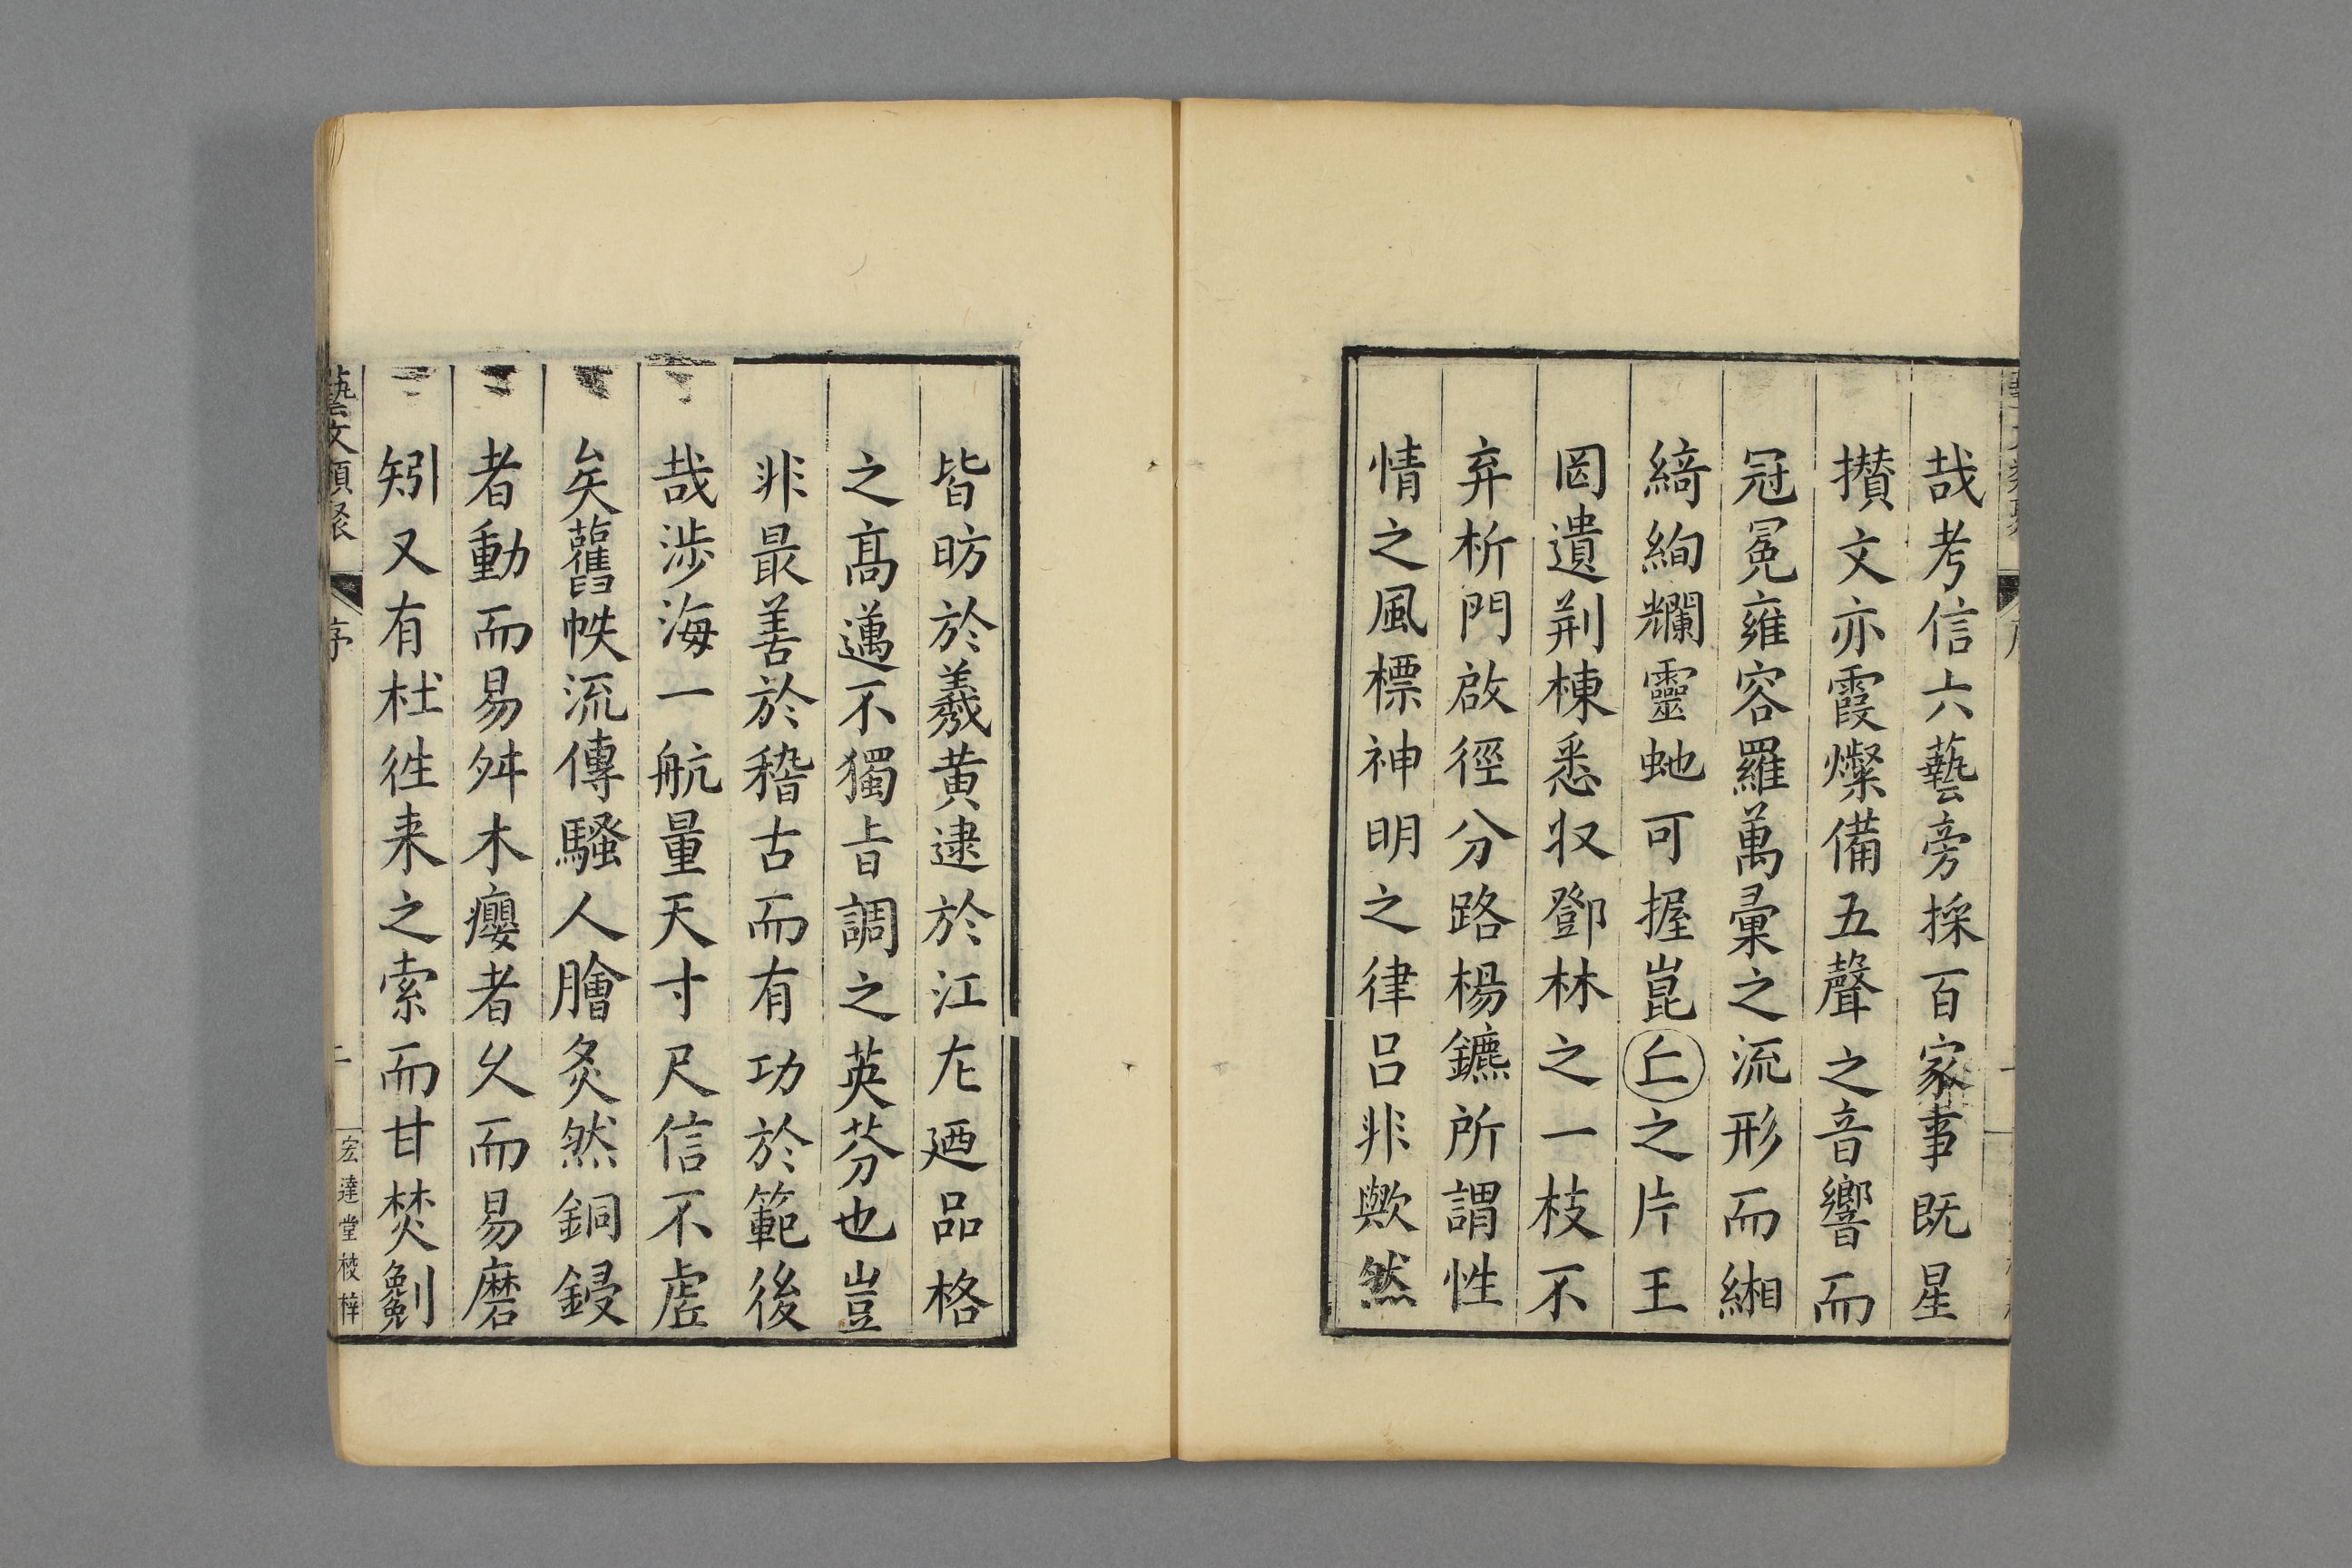 哉考信六藝旁採百家事既星
攅文亦霞燦備五聲之音響而
冠冕雍容羅萬彙之流形而緗
綺絢爛靈虵可握崑丘之片玉
罔遺荆棟悉収鄧林之一枝不
弃析門啟徑分路楊鑣所謂性
情之風標神明之律呂非歟然
皆昉於羲黄逮於江左廼品格
之高邁不獨㫖調之英芬也豈
非最善於稽古而有功於範後
哉渉海一航量天寸尺信不虗
矣舊帙流傳騷人膾炙然銅鋟
者動而易舛木癭者久而易磨
矧又有杜徃来之索而甘焚劖
藝文類聚 序 二 宏達堂校梓